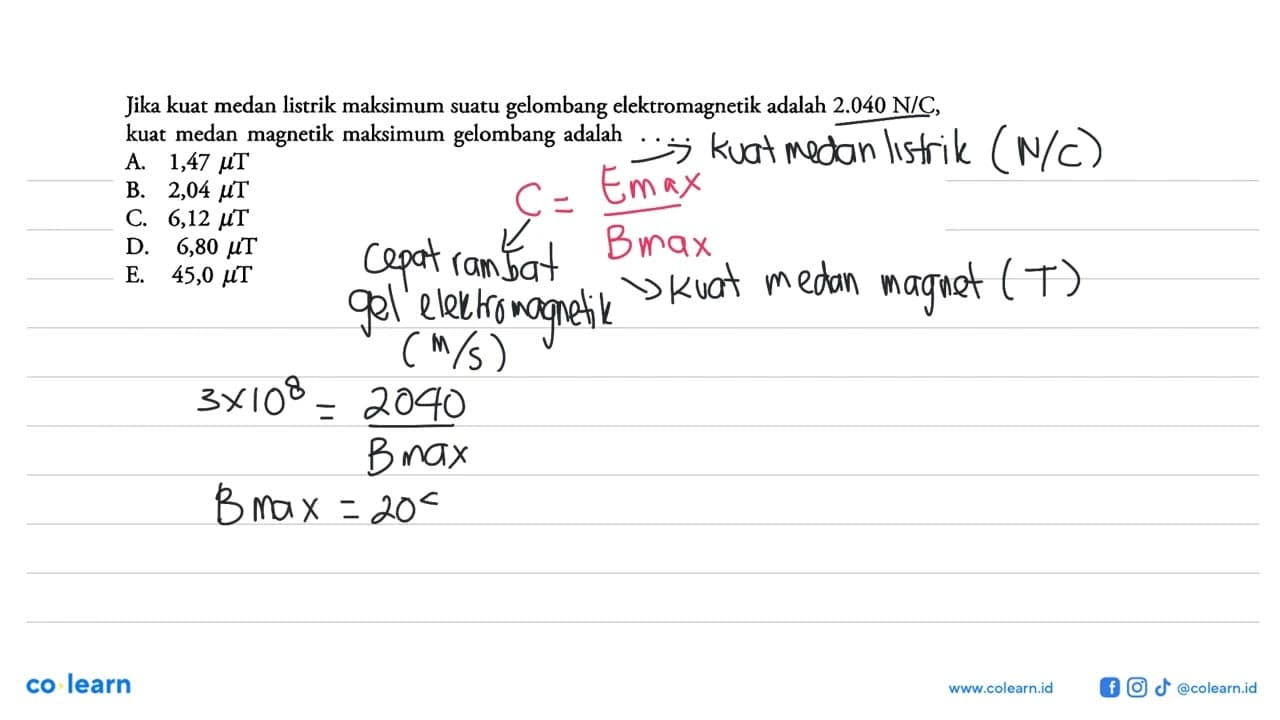 Jika kuat medan listrik maksimum suatu gelombang elektromagnetik adalah 2.040 N/C,
kuat medan magnetik maksimum gelombang adalah ....
A. 1,47 μT
B. 2,04 μT
C. 6,12 μT
D. 6,80 μT
E. 45,0 μT
kuat medan listrik (N/C)
C = Emax
Bmax
cepat rambat
gel elektromagnetik
(m/s)
kuat medan magnet (T)
3×10⁸ = 2040
Bmax
Bmax = 20
co learn
www.colearn.id
@colearn.id